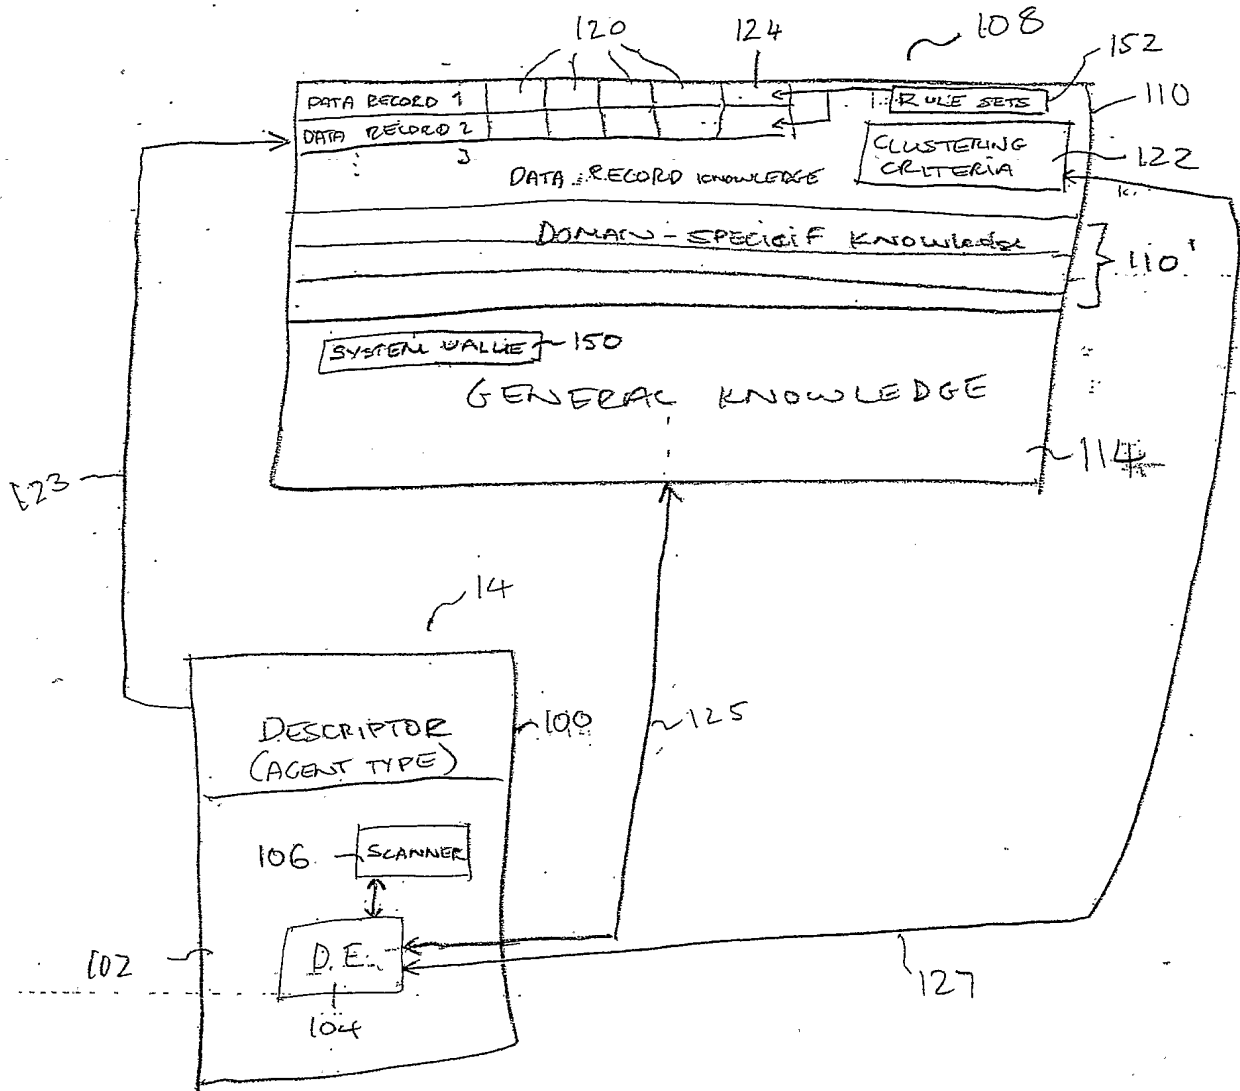 120
124
108
152
DATA RECORD 1
RULE SETS
110
DATA RECORD 2
3
CLUSTERING
CRITERIA
122
DATA RECORD KNOWLEDGE
DOMAIN-SPECIFIF KNOWLEDGE
110'
SYSTEM VALUE
150
GENERAL KNOWLEDGE
114
123
14
DESCRIPTOR
(AGENT TYPE)
100
125
106
SCANNER
102
D.E.
104
127